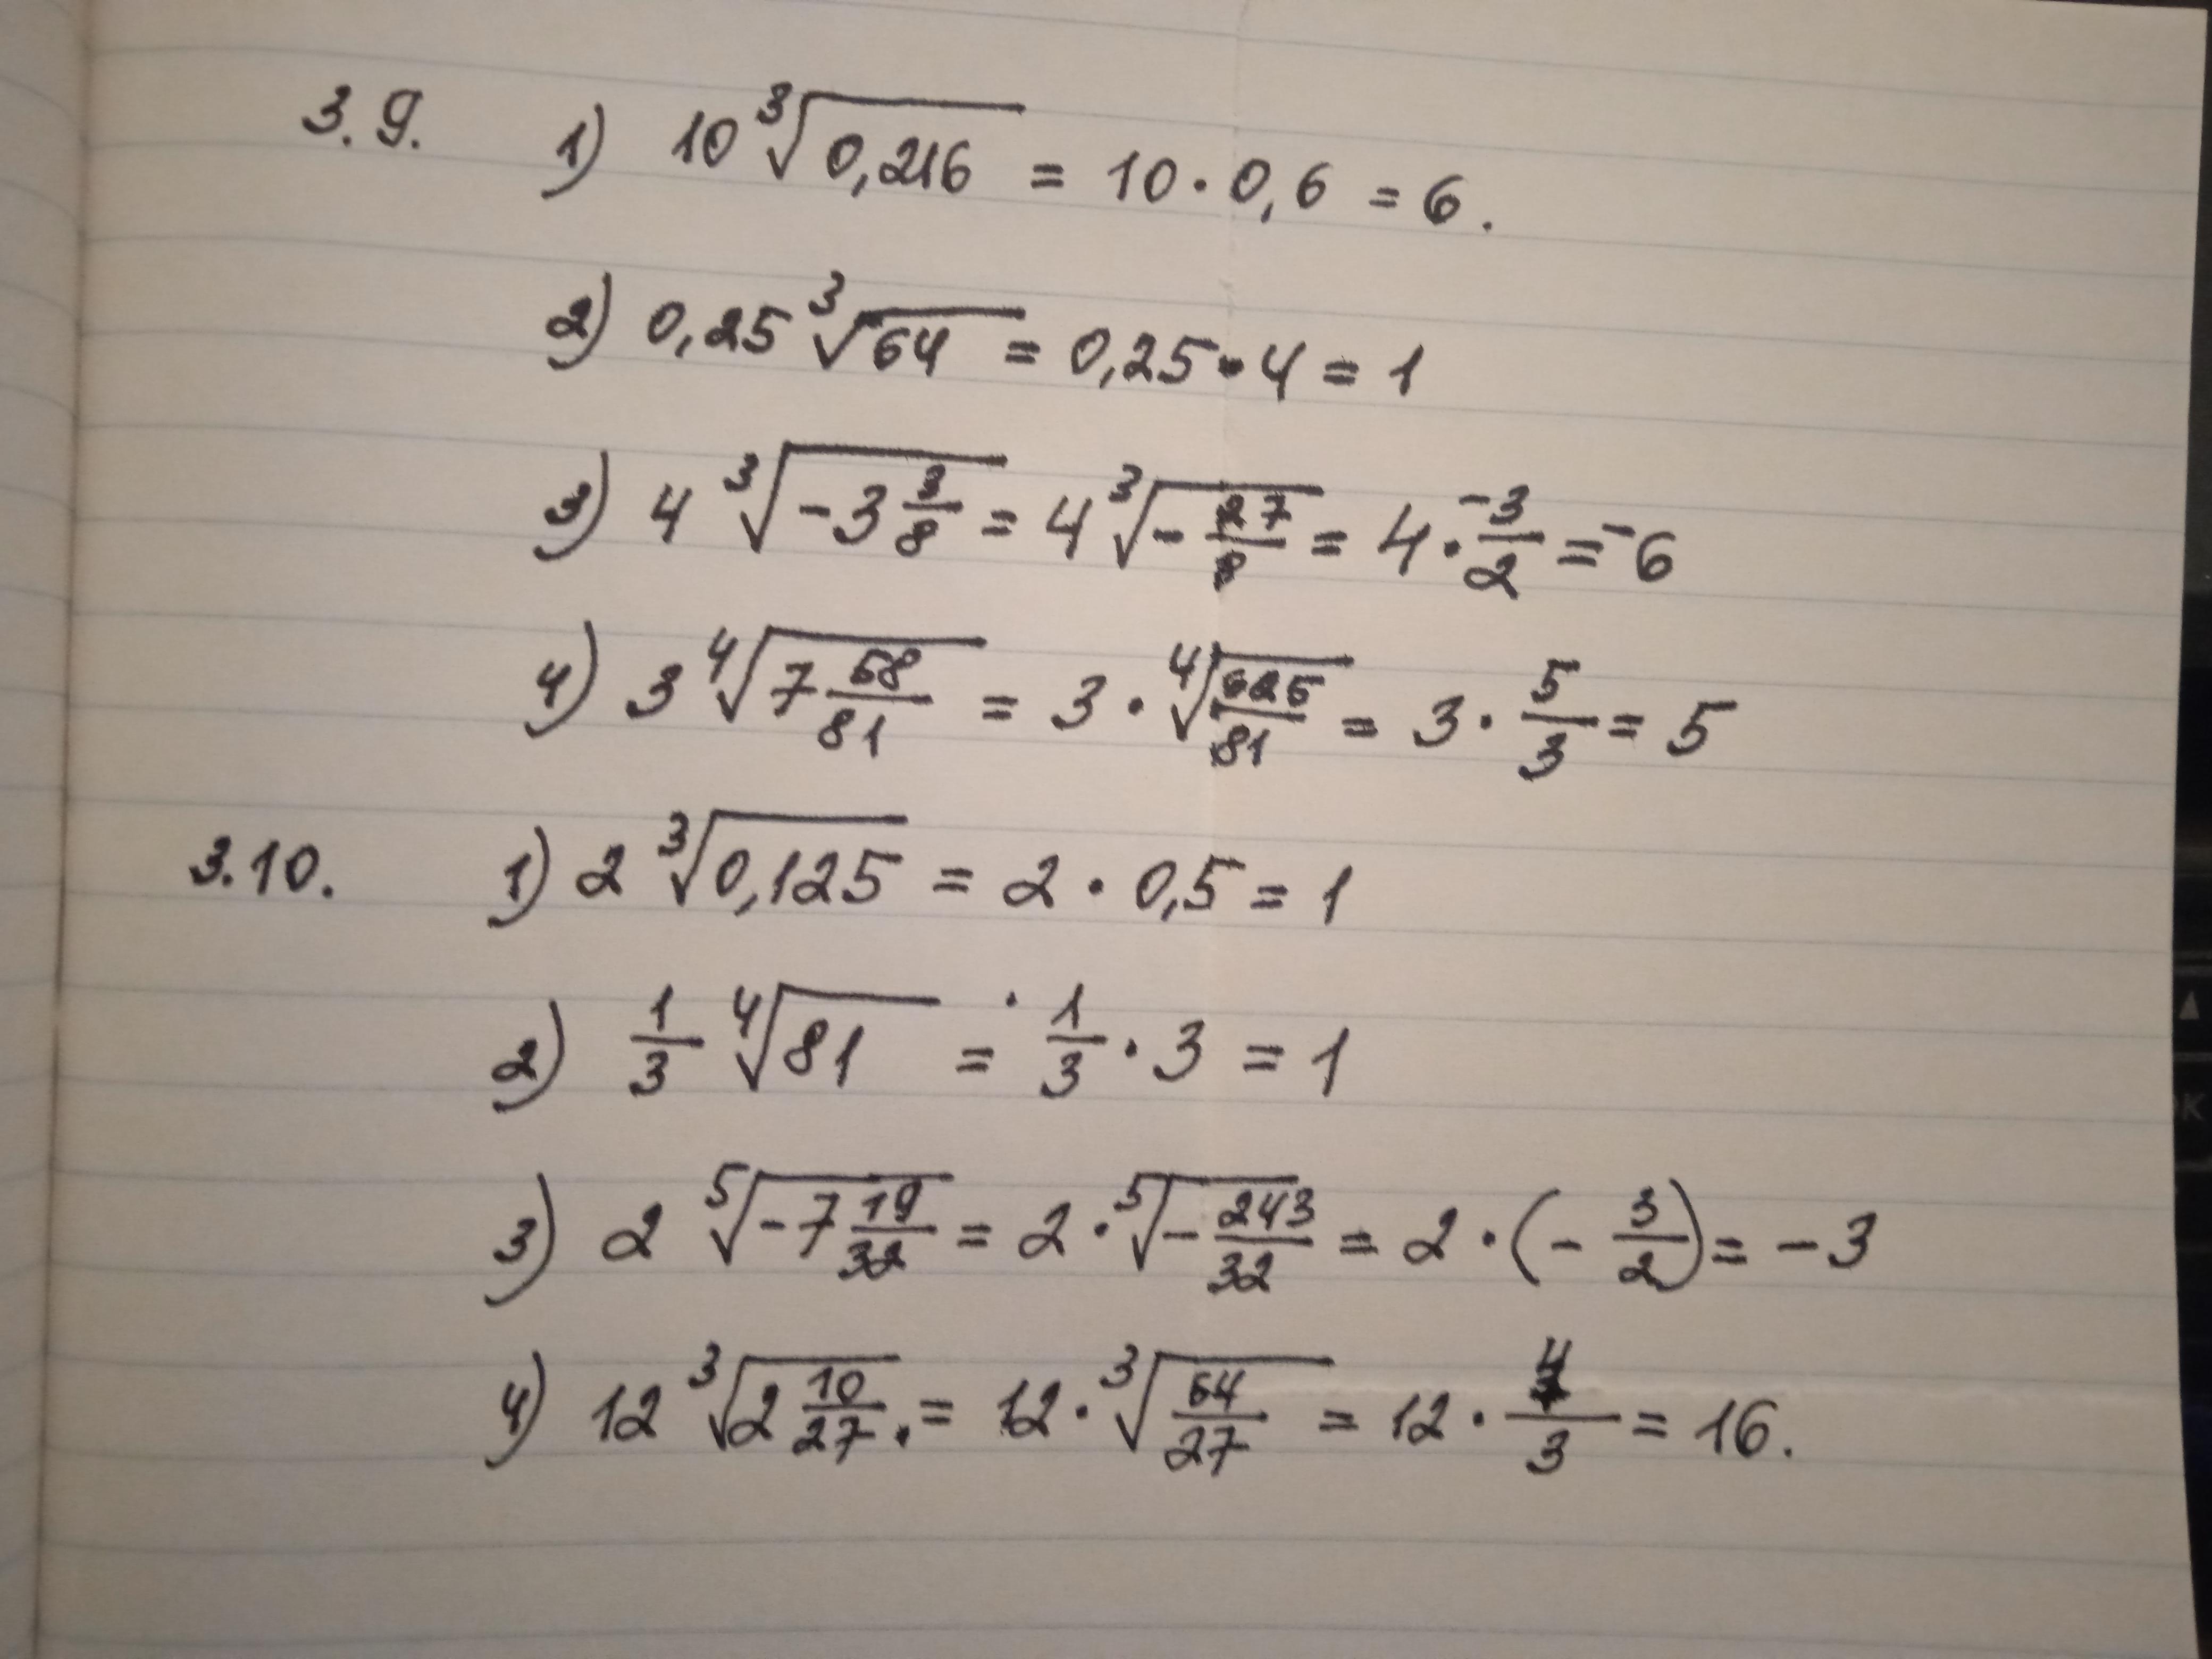 3.9. 1) 10 ∛0,216 = 10 · 0,6 = 6.
2) 0,25 ∛64 = 0,25 · 4 = 1
3) 4 ∛(-3 3/8) = 4 ∛(- 27/8) = 4 · -3/2 = -6
4) 3 ∜(7 58/81) = 3 · ∜(625/81) = 3 · 5/3 = 5
3.10. 1) 2 ∛0,125 = 2 · 0,5 = 1
2) 1/3 ∜81 = 1/3 · 3 = 1
3) 2 ⁵√(-7 19/32) = 2 · ⁵√(- 243/32) = 2 · (- 3/2) = -3
4) 12 ∛(2 10/27) = 12 · ∛(64/27) = 12 · 4/3 = 16.